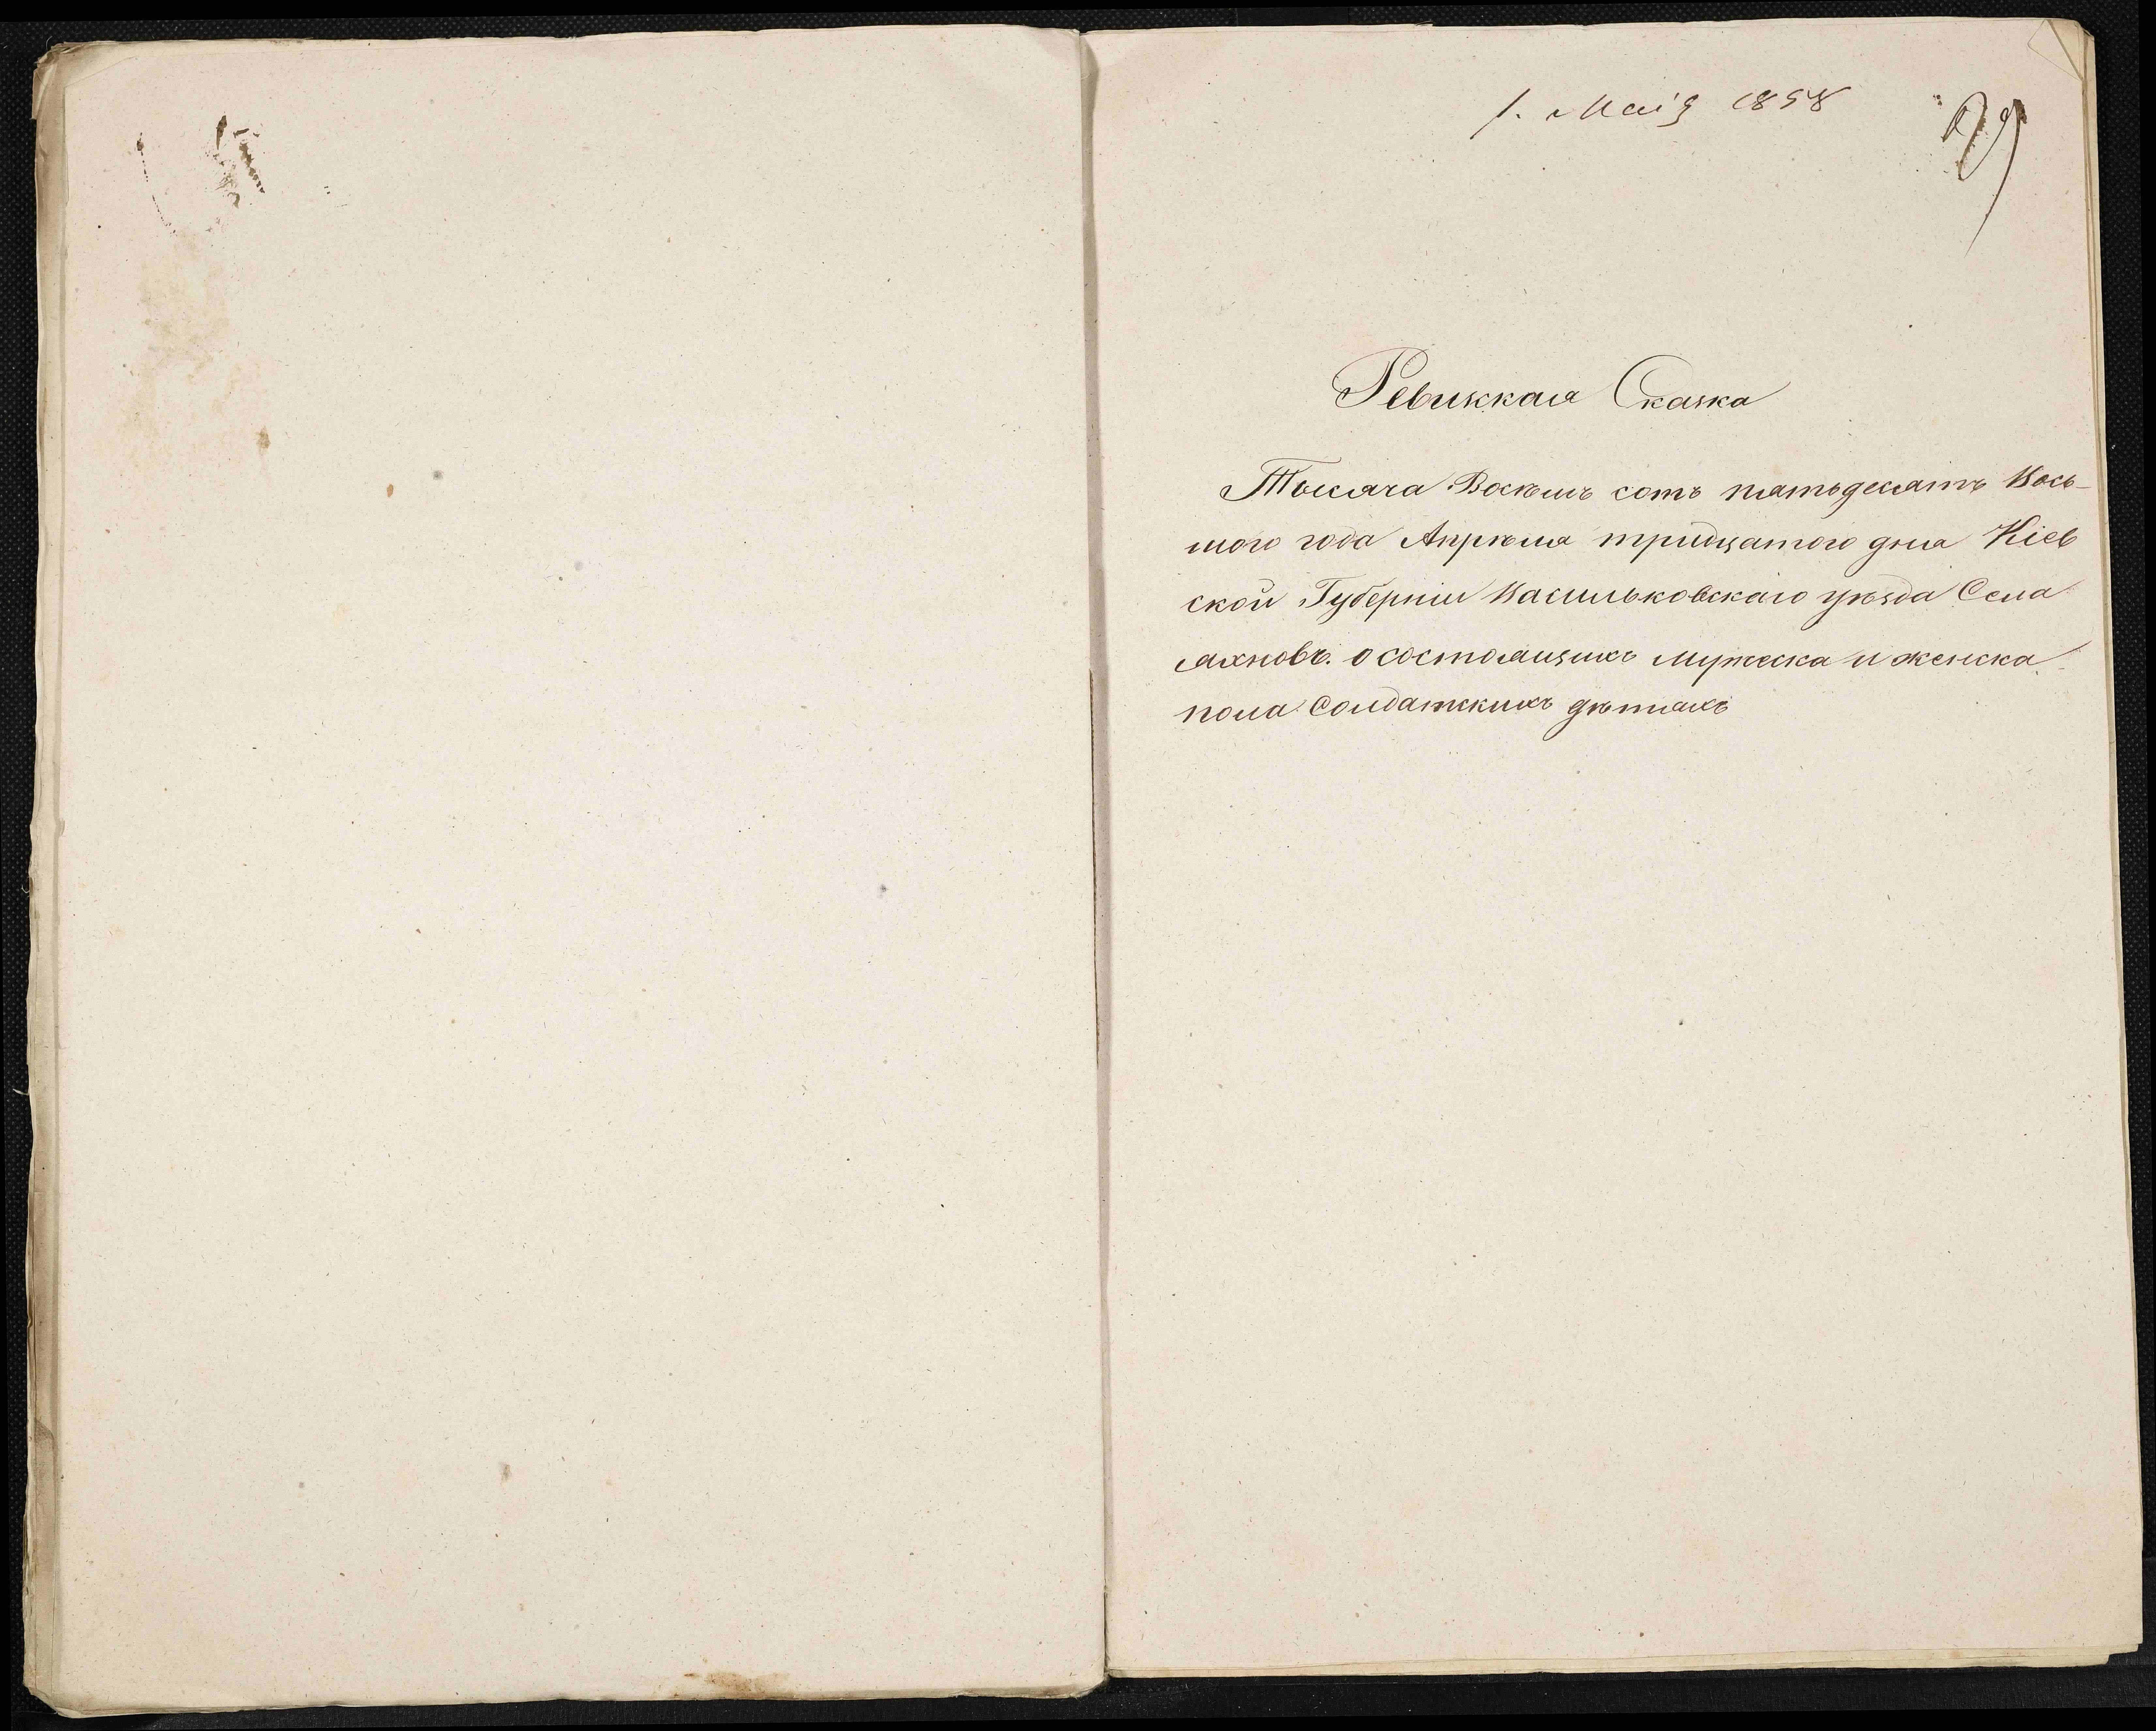 1. Маія 1858
Ревизская Сказка
Тысяча Восѣмъ сотъ пятьдесятъ Вось-
мого года Апрѣля тридцатого дня Кіев
ской Губерніи Васильковскаго уѣзда Села
Яхновъ. о состоящихъ мужеска и женска
пола Солдатскихъ дѣтяхъ